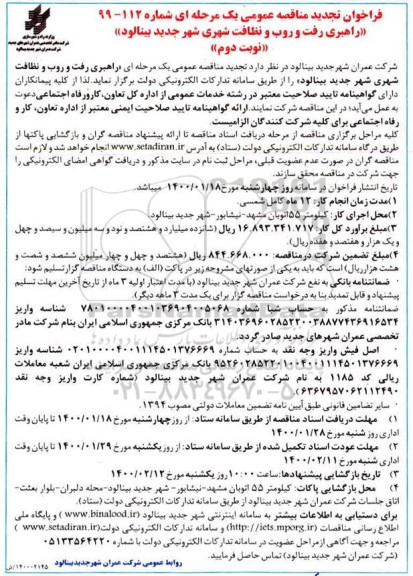 فراخوان تجدید مناقصه عمومی یک مرحله ای شماره ۱۱۲- ۹۹
«راهبری رفت و روب و نظافت شهری شهر جدید بینالود»
«نوبت دوم»
شرکت عمران شهرجدید بینالود در نظر دارد تجدید مناقصه عمومی یک مرحله ای «راهبری رفت و روب و نظافت
شهری شهر جدید بینالود» را از طریق سامانه تدارکات الکترونیکی دولت برگزار نماید. لذا از کلیه پیمانکاران
دارای گواهینامه تایید صلاحیت معتبر در رشته خدمات عمومی از اداره کل تعاون، کار ورفاه اجتماعی دعوت
به عمل می‌آید؛ در این مناقصه شرکت نمایند. ارائه گواهینامه تایید صلاحیت ایمنی معتبر از اداره تعاون، کار و
رفاه اجتماعی برای کلیه شرکت کنندگان الزامیست.
کلیه مراحل برگزاری مناقصه از مرحله دریافت اسناد مناقصه تا ارائه پیشنهاد مناقصه گران و بازگشایی پاکتها از
طریق درگاه سامانه تدارکات الکترونیکی دولت (ستاد) به آدرس www.setadiran.ir انجام خواهد شد و لازم است
مناقصه گران در صورت عدم عضویت قبلی، مراحل ثبت نام در سایت مذکور و دریافت گواهی امضای الکترونیکی را
جهت شرکت در مناقصه محقق سازند.
تاریخ انتشار فراخوان در سامانه روز چهارشنبه مورخ ۱۴۰۰/۰۱/۱۸ میباشد.
۱)مدت زمان انجام کار: ۱۲ ماه کامل شمسی.
۲)محل اجرای کار: کیلومتر ۵۵ اتوبان مشهد-نیشابور-شهر جدید بینالود.
۳)مبلغ برآورد کل کار: ۱۶.۸۹۳.۳۴۱.۷۱۷ ریال (شانزده میلیارد و هشتصد و نود و سه میلیون و سیصد و چهل
و یک هزار و هفتصد و هفده ریال).
۴)مبلغ تضمین شرکت در مناقصه: ۸۴۴.۶۶۸.۰۰۰ ریال (هشتصد و چهل و چهار میلیون ششصد و شصت و
هشت هزار ریال) است که باید به یکی از صورتهای مشروحه زیر در پاکت (الف) به دستگاه مناقصه گزار تسلیم شود:
- ضمانتنامه بانکی به نفع شرکت عمران شهر جدید بینالود (با مدت اعتبار اولیه ۳ ماه از تاریخ آخرین مهلت تسلیم
پیشنهاد و قابل تمدید بنا به درخواست مناقصه گزار برای یک مدت ۳ ماهه دیگر).
تخصصی عمران شهرهای جدید صادر گردد.
- سایر تضامین قانونی طبق آیین نامه تضمین معاملات دولتی مصوب ۱۳۹۴.
۱) مهلت دریافت اسناد مناقصه از طریق سامانه ستاد: از روز چهارشنبه مورخ ۱۴۰۰/۰۱/۱۸ تا پایان وقت
اداری روز شنبه مورخ ۱۴۰۰/۰۱/۲۸
۲) مهلت عودت اسناد تکمیل شده از طریق سامانه ستاد: از روز یکشنبه مورخ ۱۴۰۰/۰۱/۲۹ تا پایان وقت
اداری شنبه مورخ ۱۴۰۰/۰۲/۱۱
۳) تاریخ بازگشایی پیشنهادها: ساعت ۱۰:۰۰ روز یکشنبه مورخ ۱۴۰۰/۰۲/۱۲
۴) محل بازگشایی پاکات: کیلومتر ۵۵ اتوبان مشهد-نیشابور- شهر جدید بینالود-محله دلبران-بلوار بعثت-
اتاق جلسات شرکت عمران شهر جدید بینالود از طریق سامانه تدارکات الکترونیکی دولت (ستاد).
برای دستیابی به اطلاعات بیشتر به سامانه اینترنتی شهر جدید بینالود ( www.binalood.ir ) و پایگاه ملی
اطلاع رسانی مناقصات (http://iets.mporg.ir) و سامانه تدارکات الکترونیکی دولت( www.setadiran.ir )
مراجعه و جهت آگاهی از مراحل عضویت در سامانه تدارکات الکترونیکی دولت با شماره ۰۵۱۳۳۵۶۴۲۲۰
(شرکت عمران شهر جدید بینالود) تماس حاصل فرمایید.
روابط عمومی شرکت عمران شهر جدید بینالود